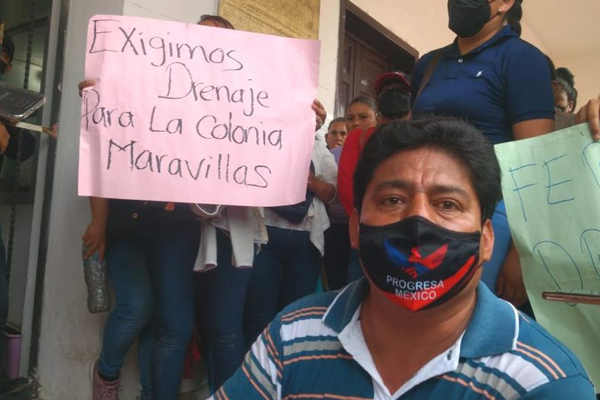 Exigimos
Drenaje
Para La Colonia
Maravillas
PROGRESA
MEXICO